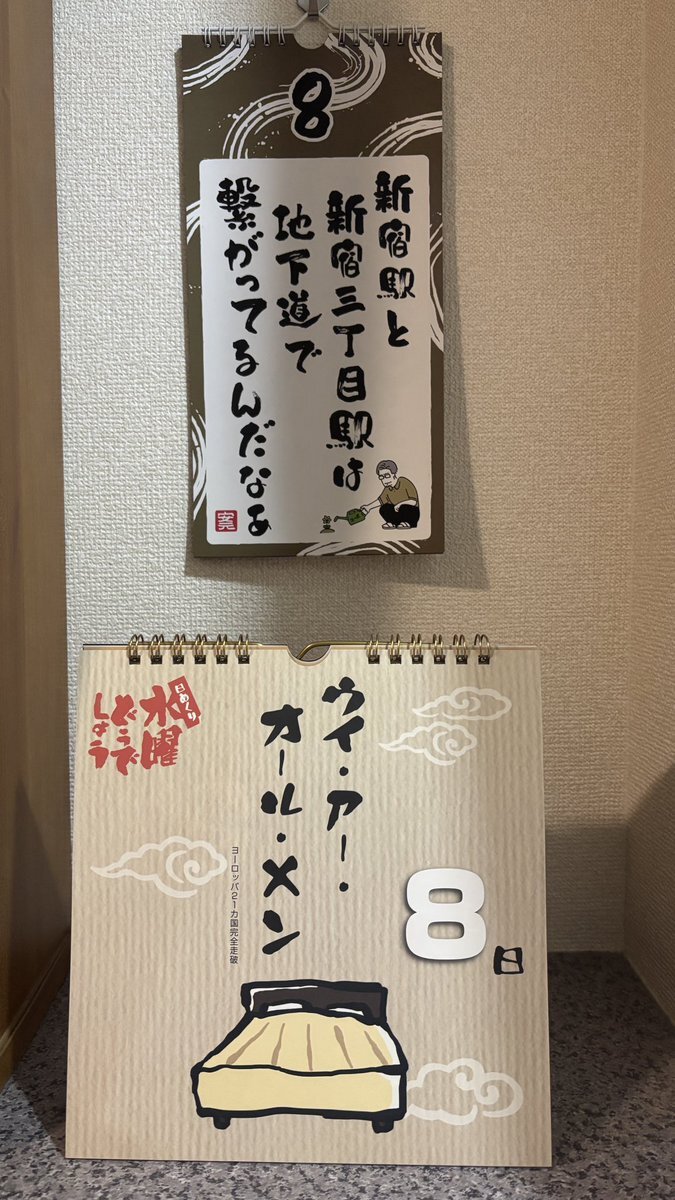 8
新宿駅と
新宿三丁目駅は
地下道で
繋がってるんだなぁ
日めくり
水曜
どうで
しょう
ウィ・アー・
オール・メン
ヨーロッパ21カ国完全走破
8
日